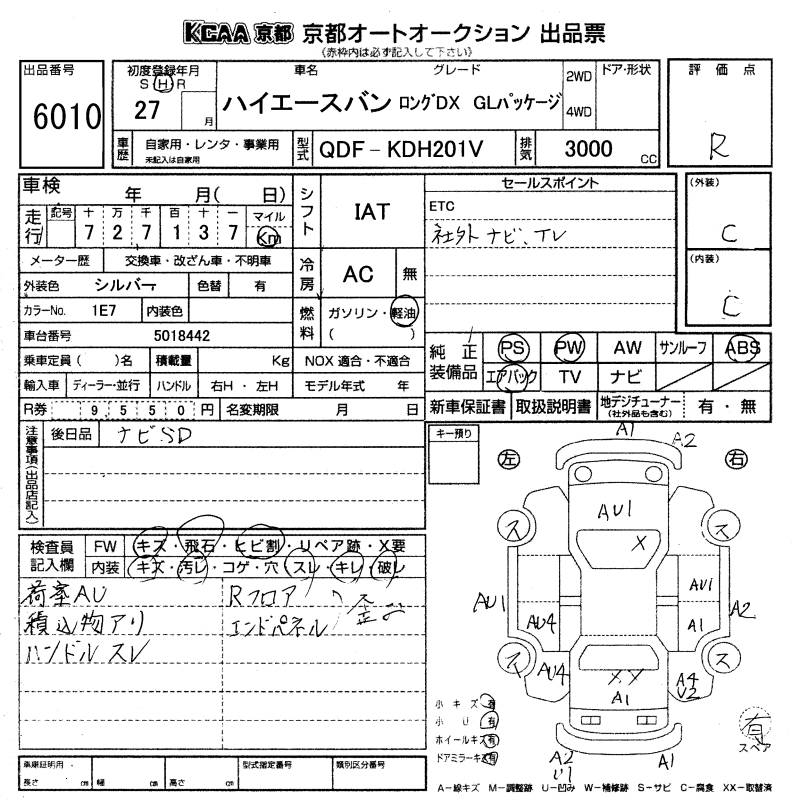 KCAA 京都 京都オートオークション 出品票
(赤枠内は必ず記入して下さい)
出品番号
6010
初度登録年月
S H R
27 月
車名 グレード
ハイエースバン ロングDX GLパッケージ
2WD
4WD
ドア・形状
評価点
R
車歴 自家用・レンタ・事業用
未記入は自家用
型式 QDF-KDH201V
排気 3000 CC
車検 年 月( 日)
走行 記号 十 万 千 百 十 一 マイル
7 2 7 1 3 7 Km
シフト IAT
メーター歴 交換車・改ざん車・不明車
冷房 AC 無
外装色 シルバー 色替 有
カラーNo. 1E7 内装色
燃料 ガソリン・軽油
( )
車台番号 5018442
乗車定員( )名 積載量 Kg NOX 適合・不適合
輸入車 ディーラー・並行 ハンドル 右H・左H モデル年式 年
R券 9 5 5 0 円 名変期限 月 日
セールスポイント
ETC
社外ナビ、TV
(外装)
C
(内装)
C
純正装備品 PS PW AW サンルーフ ABS
エアバック TV ナビ
新車保証書 取扱説明書 地デジチューナー(社外品も含む) 有・無
注意事項(出品店記入)
後日品 ナビSD
キー預り
左
右
検査員記入欄
FW キズ・飛石・ヒビ割・リペア跡・X要
内装 キズ・汚レ・コゲ・穴・スレ・キレ・破レ
荷室AU
積込物アリ
ハンドルスレ
Rフロア
エンドパネル
歪み
A1
A2
AU1
X
ス
ス
AU1
AU4
AU1
A1
A2
ス
ス
AU4
XX
A1
A4
U2
A2
U1
A1
小キズ 有
小U 有
ホイールキズ 有
ドアミラーキズ 有
有
スペア
車庫証明用
長さ cm 幅 cm 高さ cm
型式指定番号
類別区分番号
A-線キズ M-調整跡 U-凹み W-補修跡 S-サビ C-腐食 XX-取替済